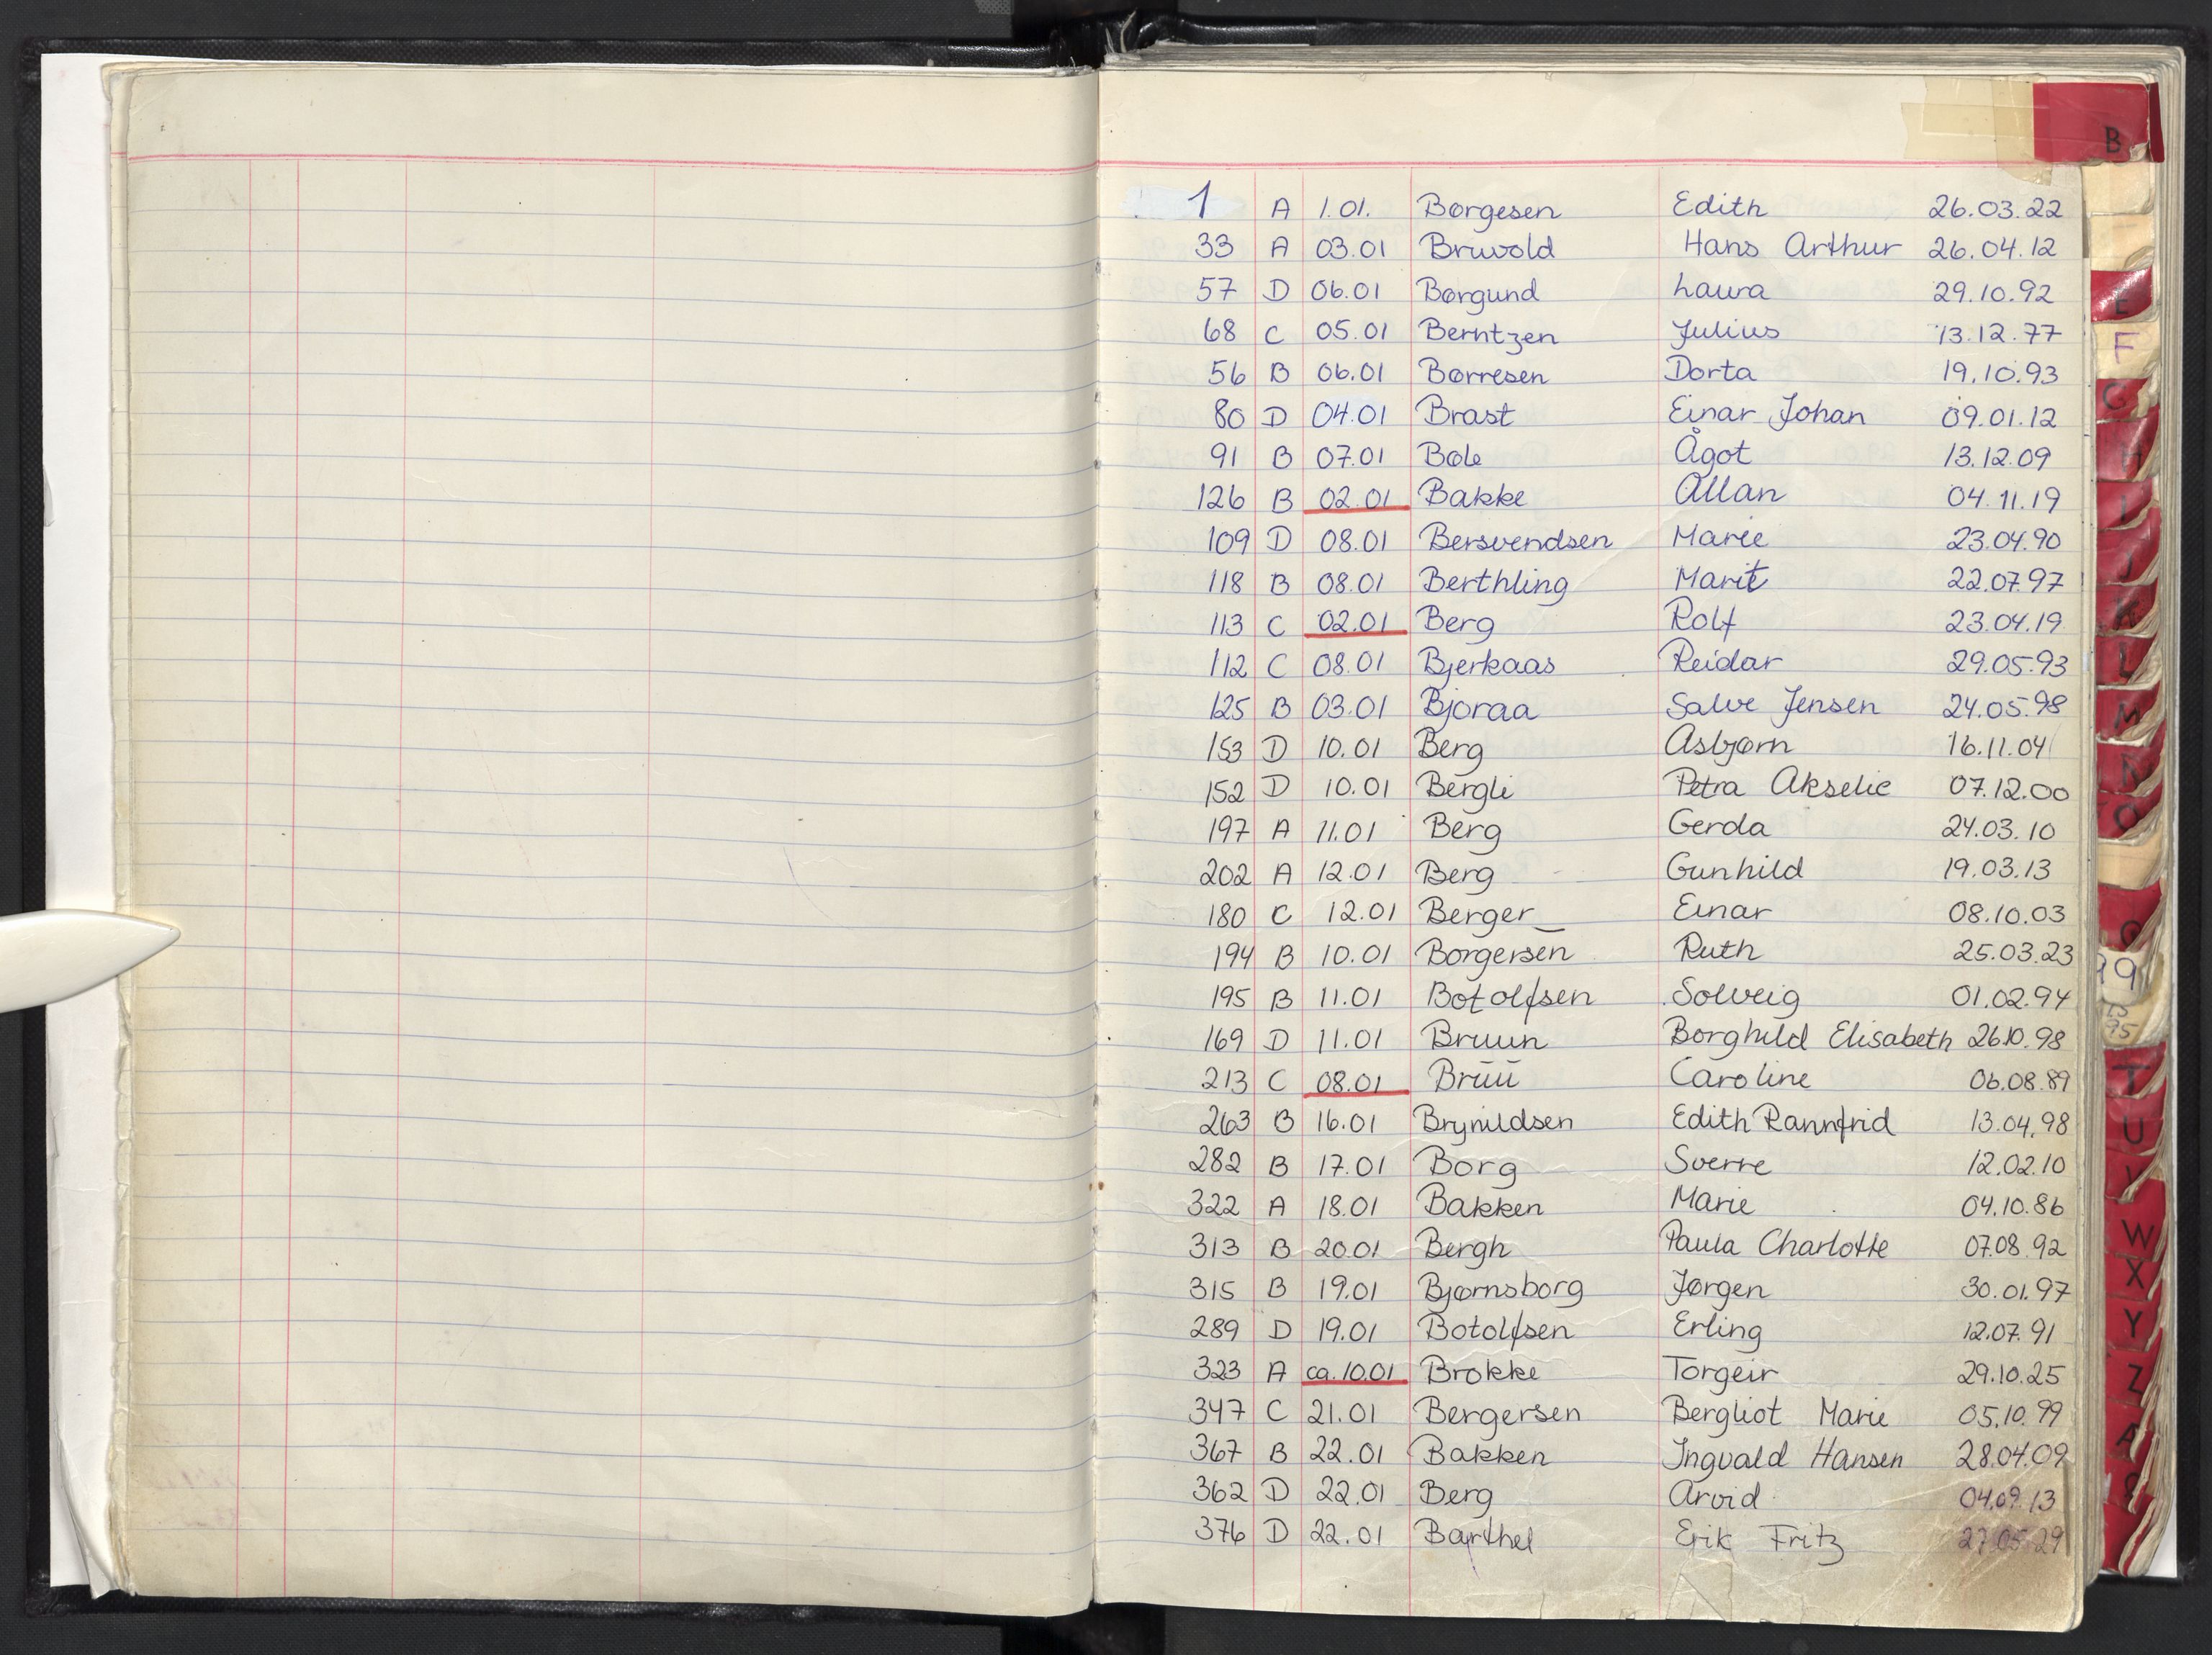 B
1 A 1.01. Børgesen Edith 26.03.22
33 A 03.01 Bruvold Hans Arthur 26.04.12
57 D 06.01 Børgund Laura 29.10.92
68 C 05.01 Berntzen Julius 13.12.77
56 B 06.01 Børresen Dorta 19.10.93
80 D 04.01 Brast Einar Johan 09.01.12
91 B 07.01 Bøle Ågot 13.12.09
126 B 02.01 Bakke Allan 04.11.19
109 D 08.01 Bersvendsen Marie 23.04.90
118 B 08.01 Berthling Marit 22.07.97
113 C 02.01 Berg Rolf 23.04.19
112 C 08.01 Bjerkaas Reidar 29.05.93
125 B 03.01 Bjoraa Salve Jensen 24.05.98
153 D 10.01 Berg Asbjørn 16.11.04
152 D 10.01 Bergli Petra Akselie 07.12.00
197 A 11.01 Berg Gerda 24.03.10
202 A 12.01 Berg Gunhild 19.03.13
180 C 12.01 Berger Einar 08.10.03
194 B 10.01 Borgersen Ruth 25.03.23
195 B 11.01 Botolfsen Solveig 01.02.94
169 D 11.01 Bruun Borghild Elisabeth 26.10.98
213 C 08.01 Bruu Caroline 06.08.89
263 B 16.01 Brynildsen Edith Rannfrid 13.04.98
282 B 17.01 Borg Sverre 12.02.10
322 A 18.01 Bakken Marie 04.10.86
313 B 20.01 Bergh Paula Charlotte 07.08.92
315 B 19.01 Bjørnsborg Jørgen 30.01.97
289 D 19.01 Botolfsen Erling 12.07.91
323 A ca.10.01 Brokke Torgeir 29.10.25
347 C 21.01 Bergersen Bergliot Marie 05.10.99
367 B 22.01 Bakken Ingvald Hansen 28.04.09
362 D 22.01 Berg Arvid 04.09.13
376 D 22.01 Barthel Erik Fritz 27.05.29
E
F
G
H
I
J
K
L
M
N
O
T
U
V
W
X
Y
Z